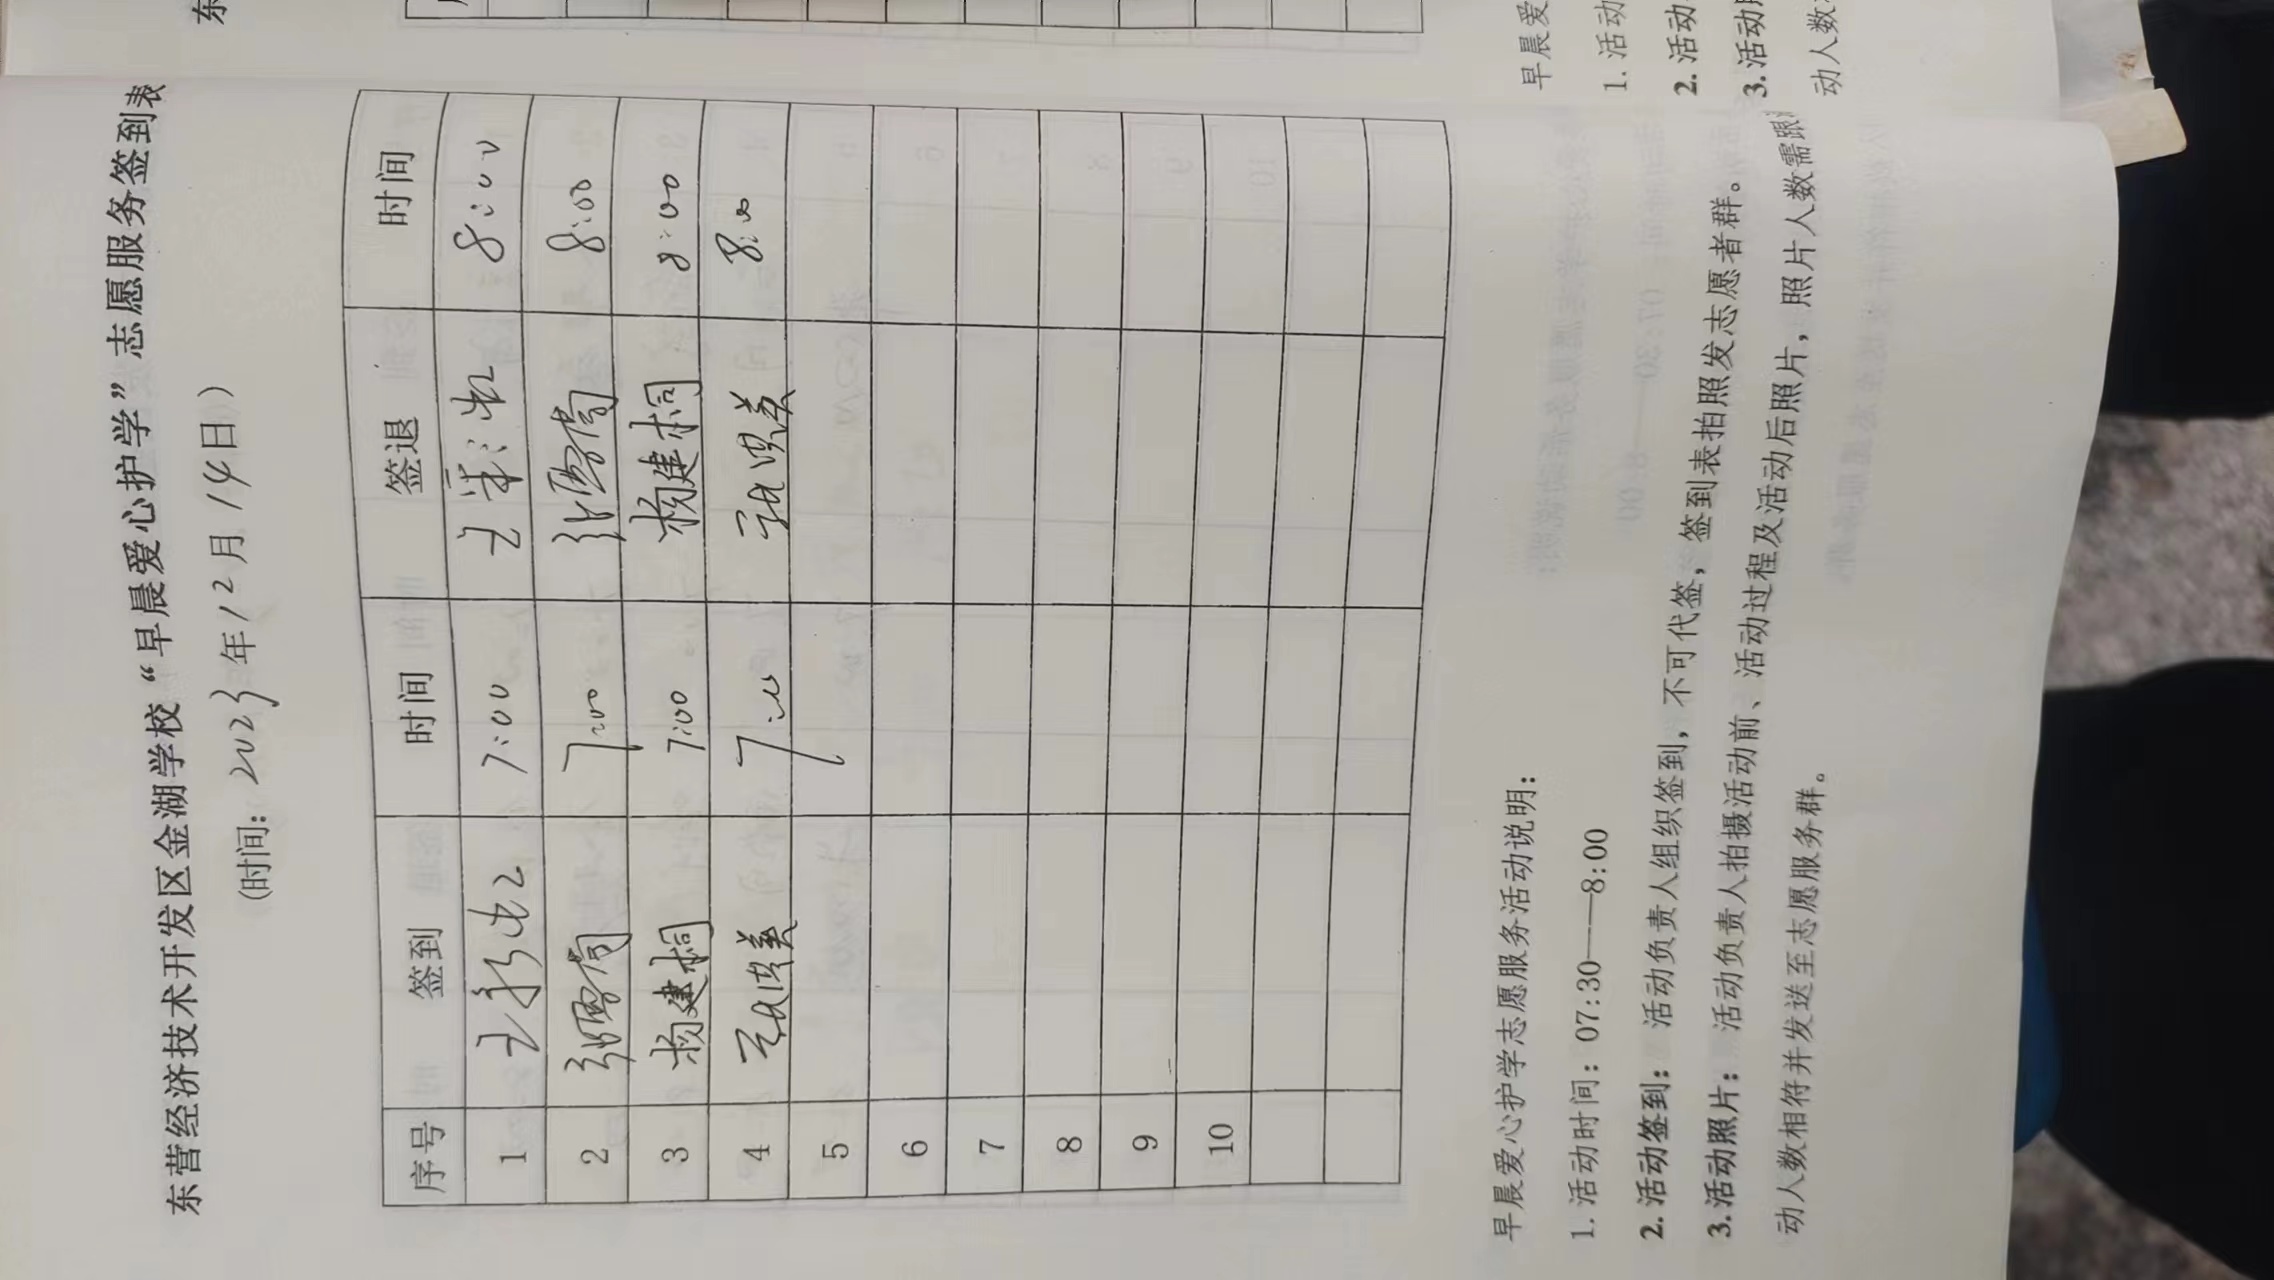 东营经济技术开发区金湖学校“早晨爱心护学”志愿服务签到表
(时间: 2023年12月14日)
序号 签到 时间 签退 时间
1 7:00 8:00
2 7:00 8:00
3 杨建桐 7:00 杨建桐 8:00
4 7:00 8:00
5
6
7
8
9
10
早晨爱心护学志愿服务活动说明:
1. 活动时间: 07:30——8:00
2. 活动签到: 活动负责人组织签到, 不可代签, 签到表拍照发志愿者群。
3. 活动照片: 活动负责人拍摄活动前、活动过程及活动后照片, 照片人数需跟
动人数相符并发送至志愿服务群。
东
早晨爱
1. 活动
2. 活动
3. 活动
动人数